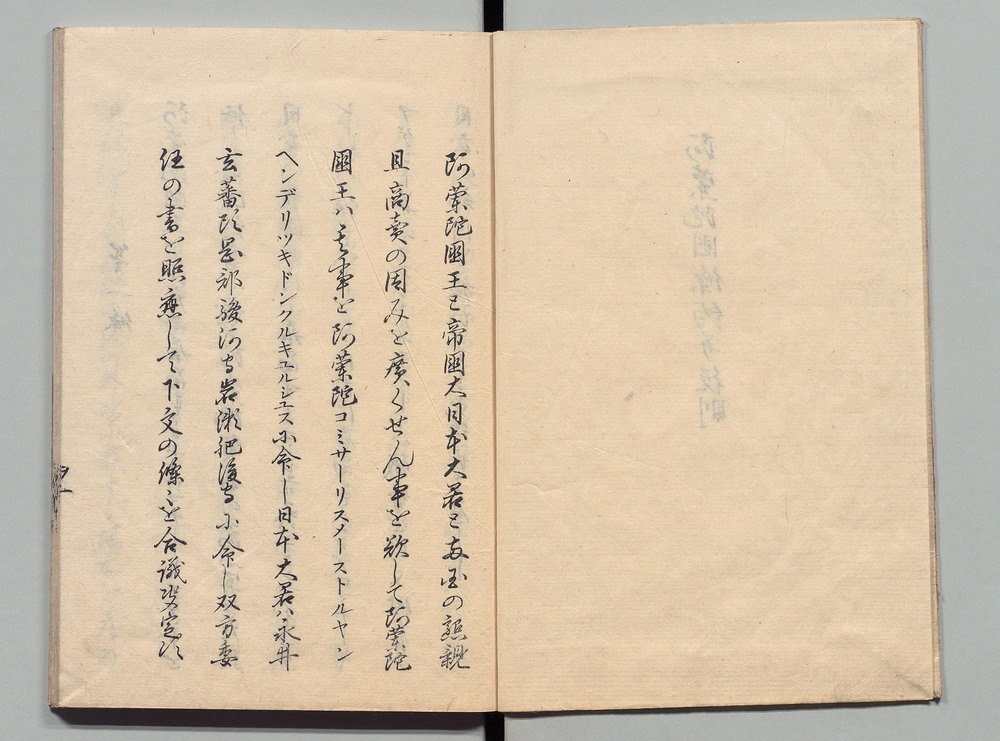 阿蘭陀國王と帝國大日本大君と両国の懇親
且商賣の因みを廣くせん事を欲して阿蘭陀
國王ハ其事を阿蘭陀コミサーリスメーストルヤン
ヘンデリツキドンクルキユルシユス尓命し日本大君ハ永井
玄蕃頭岡部駿河守岩瀬肥後守尓命し双方委
任の書を照應して下文の條々を合議決定す